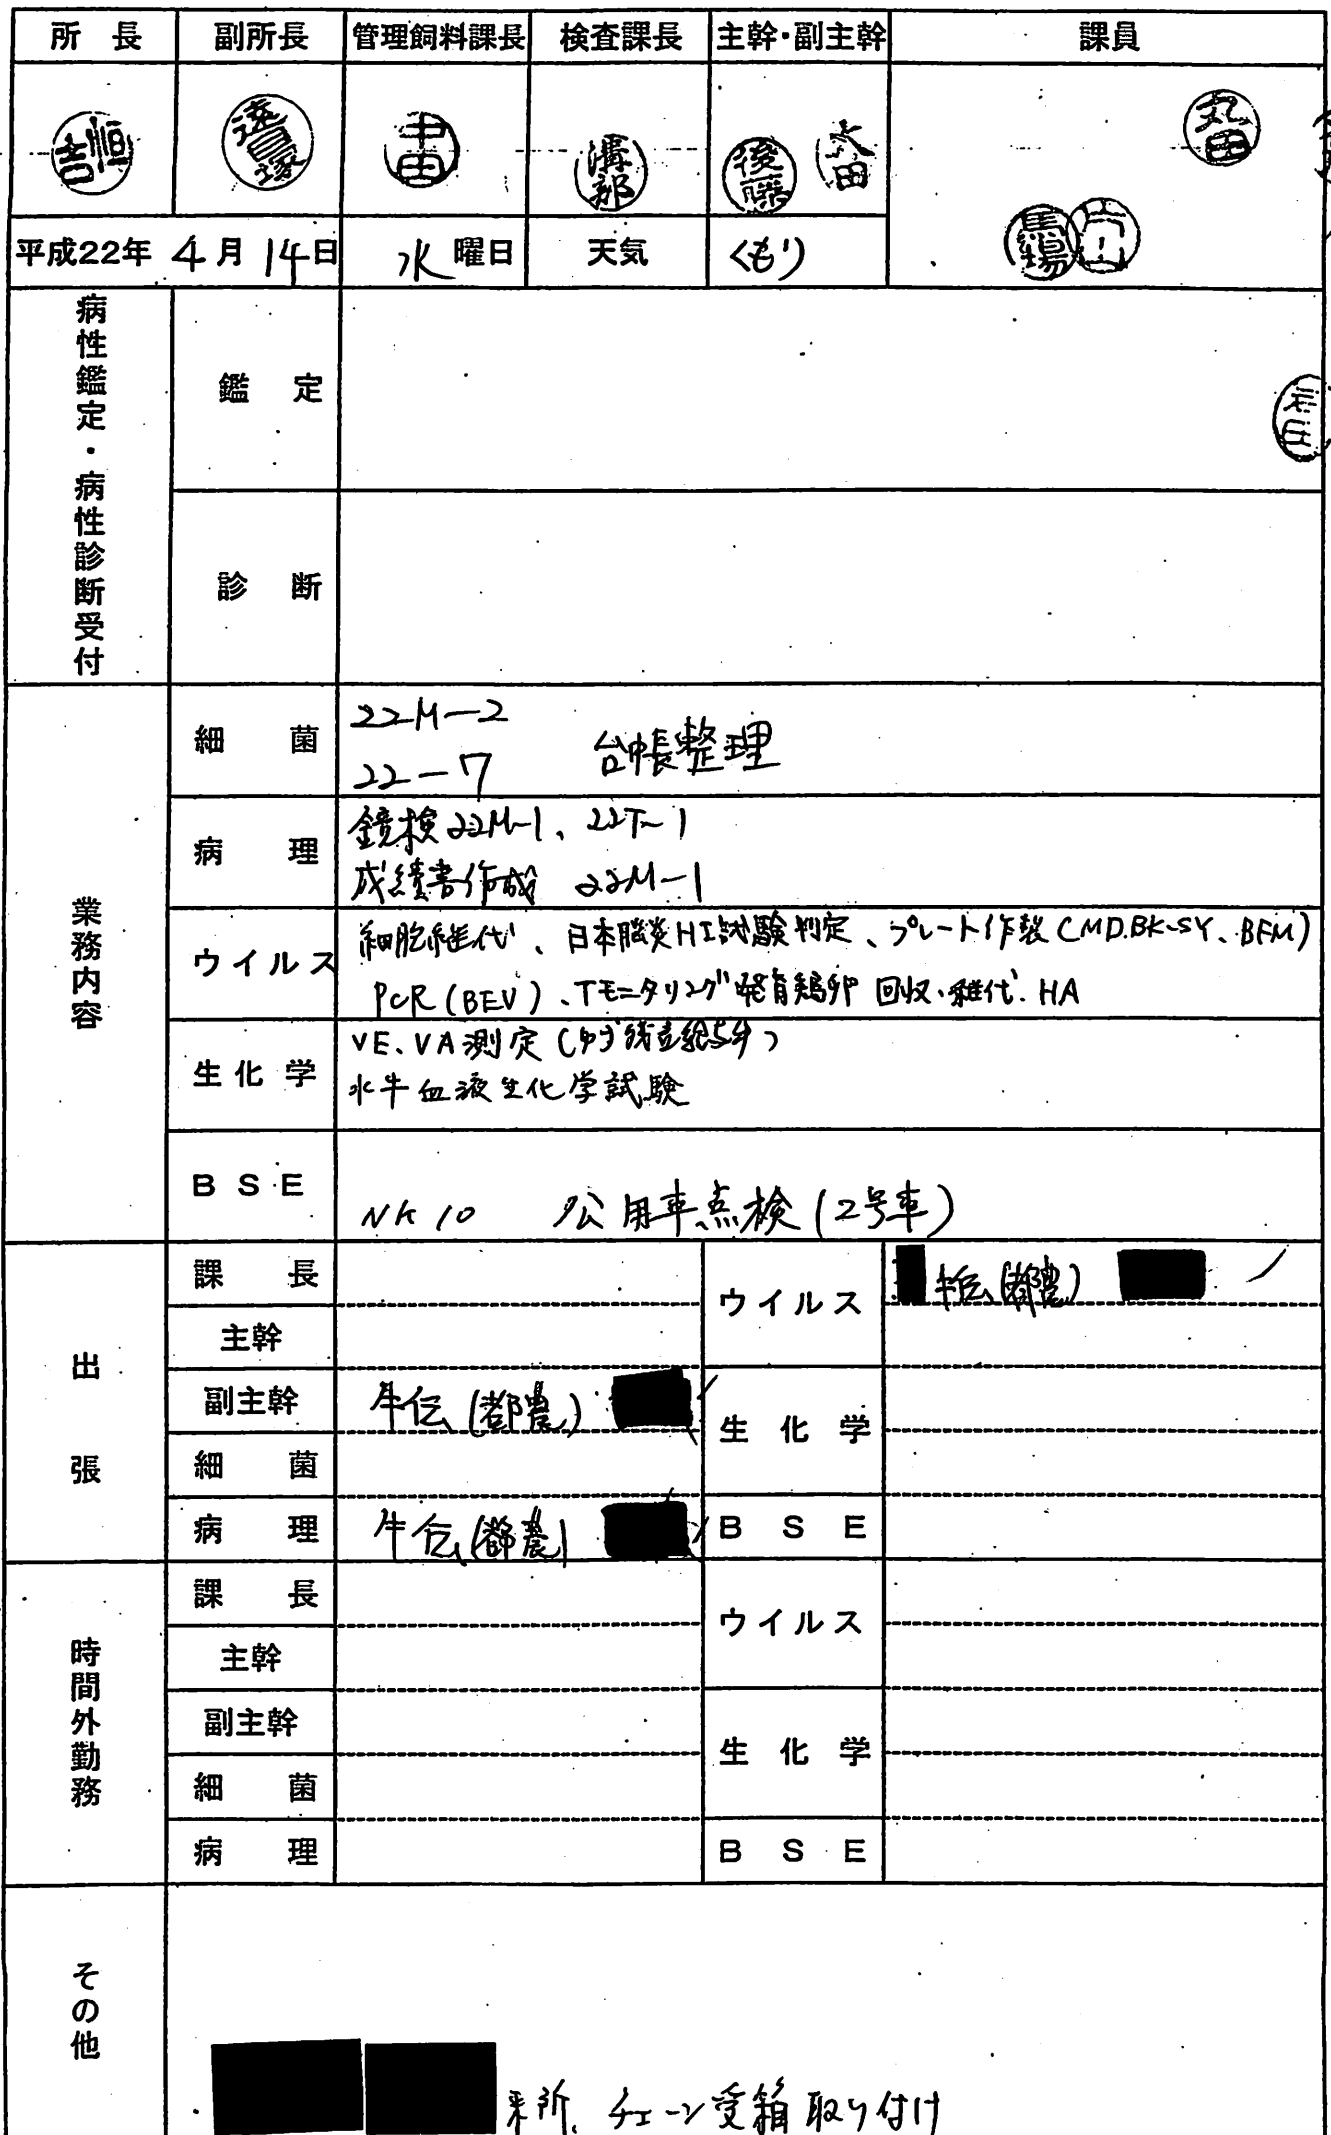 所長 副所長 管理飼料課長 検査課長 主幹・副主幹 課員
恒吉 遠目塚 中田 溝部 後藤 丸田
馬場
平成22年 4月 14日 水曜日 天気 くもり
病性鑑定・病性診断受付
鑑定
診断
業務内容
細菌 22M-2
22-7 台帳整理
病理 鏡検 22M-1、22T-1
成績書作成 22M-1
ウイルス 細胞継代、日本脳炎HI試験判定、プレート作製(MD.BK-SY、BFM)
PCR(BEV)、Tモニタリング発育鶏卵 回収、継代、HA
生化学 VE、VA測定(ゆず残渣給与牛)
水牛血液生化学試験
BSE NK 10 公用車点検(2号車)
出張
課長 ウイルス 牛伝(都農)
主幹
副主幹 牛伝(都農) 生化学
細菌
病理 牛伝(都農) BSE
時間外勤務
課長 ウイルス
主幹
副主幹 生化学
細菌
病理 BSE
その他
来所、チェーン受箱取り付け